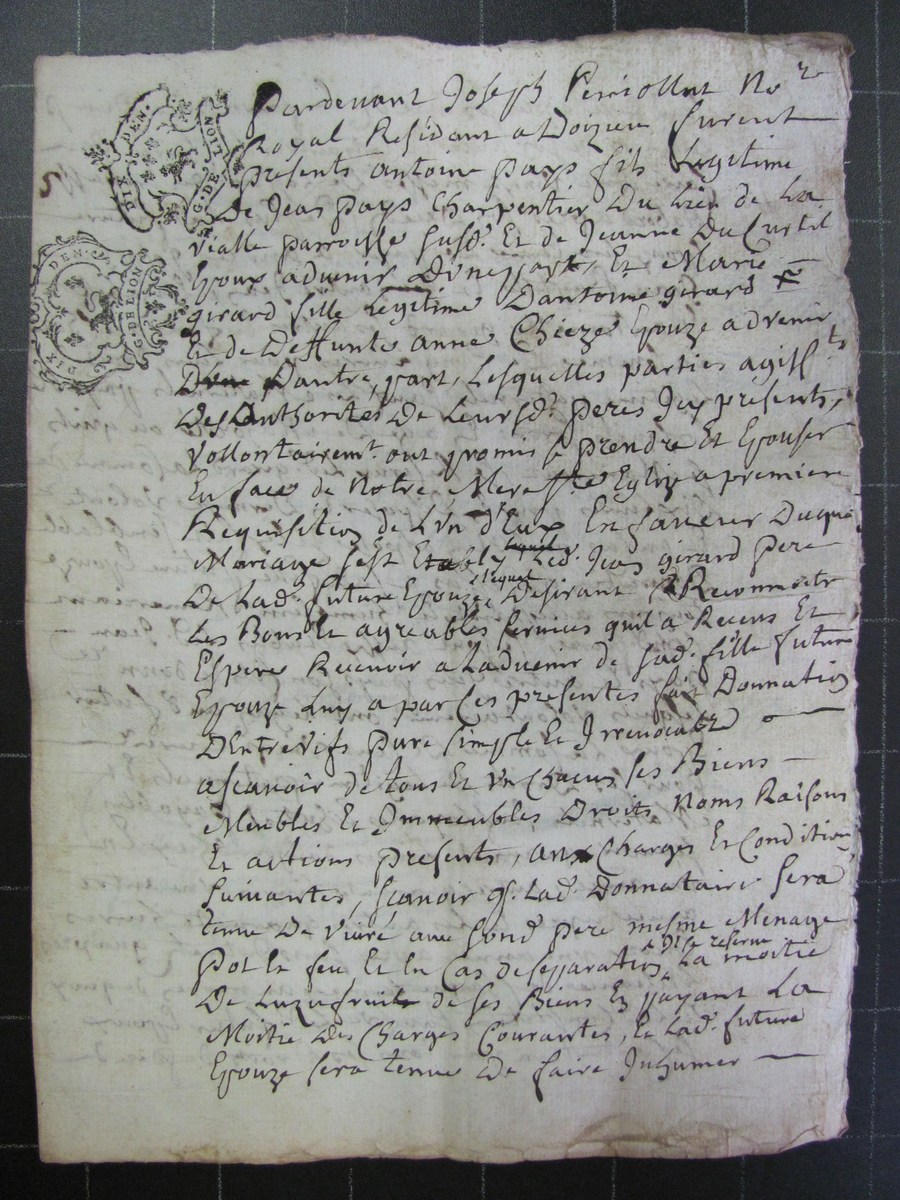 DIX DEN. G. DE LION
DIX DEN. G. DE LION
5
Pardevant Joseph Periollat No.re
Royal Residant a Doizieu furent
presents antoine pays fils Legitime
De Jean pays Charpentier Du Lieu de La
vialle parroisse susd. Et de Jeanne Du Curtil
Epoux advenir D'une part, Et Marie
girard fille Legitime D'antoine girard
Et de Deffunte anne Chieze Epouze advenir
D'une Dautre part, Lesquelles parties agiss.ts
Des Authorités De Leursd. peres Icy presents,
vollontairem.t ont promis se prendre Et Epouser
En face de Notre Mere s.te Eglize a premiere
Requisition de L'vn d'Eux En faveur Duquel
Mariage sest Etably Led. Jean girard pere
De Lad. future Epouze, lequel Desirant Reconnoitre
Les Bons Et agreables services quil a Receus Et
Espere Recevoir a Ladvenir de sad. fille future
Epouze Luy a par Ces presentes fait Donnation
D'Entrevifs pure simple Et Irrevocable
ascavoir de tous Et vn Chacun ses Biens
Meubles Et Immeubles Droits Noms Raisons
Et actions presents, aux Charges Et Conditions
suivantes, scavoir q. Lad. Donnataire sera
tenue De vivre avec sond. pere mesme Menage
pot Et feu Et En Cas de separation, Il se reserve La moitié
De Luzufruit de ses Biens En payant La
Moitie Des Charges Courantes, Et Lad. future
Epouze sera tenue De faire Inhumer